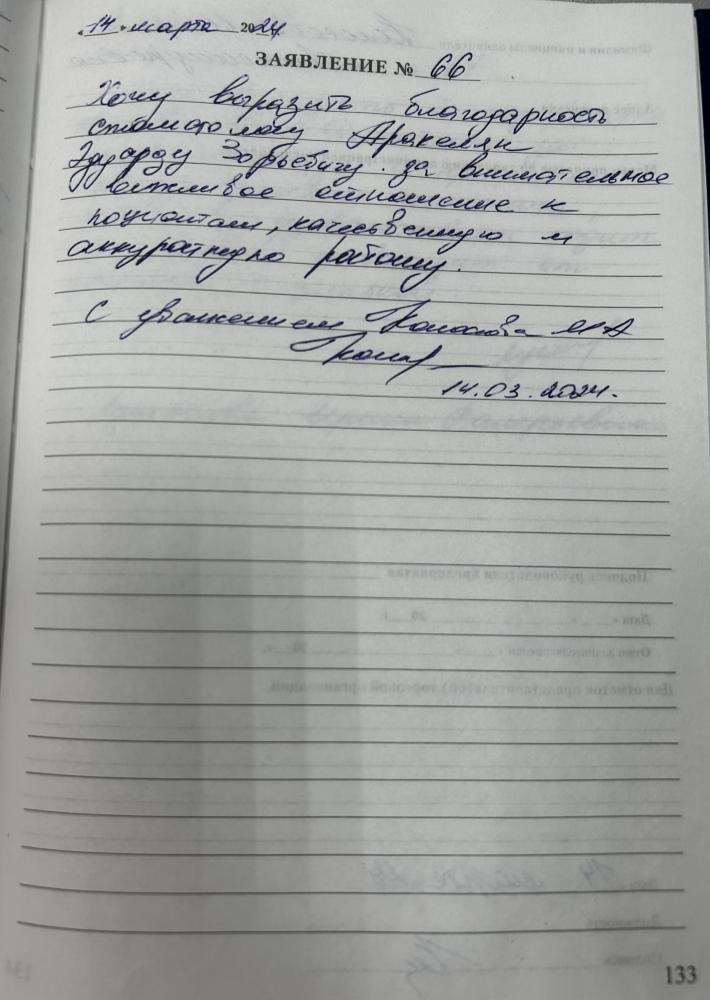 "14" марта 2024
ЗАЯВЛЕНИЕ № 66
Хочу выразить благодарность
стоматологу Аракелян
Эдуарду Зорьевичу за внимательное
вежливое отношение к
пациентам, качественную и
аккуратную работу.
С уважением М А
14.03.2024.
133